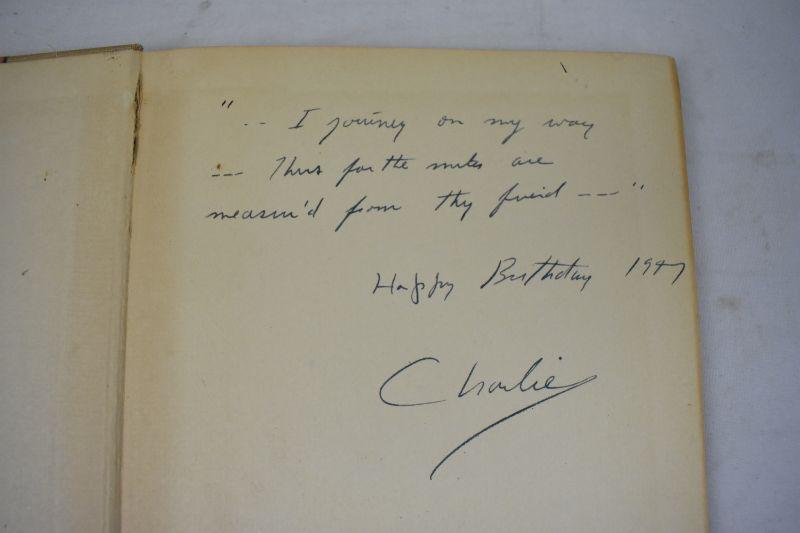 " -- I journey on my way
--- Thus far the miles are
measur'd from thy friend --- "
Happy Birthday 1947
Charlie